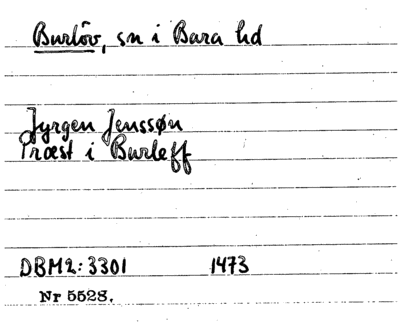 Burlöv, sn i Bara hd
Jyrgen Jenssøn
Præst i Burleff
DBM2:3301 1473
Nr 5528.